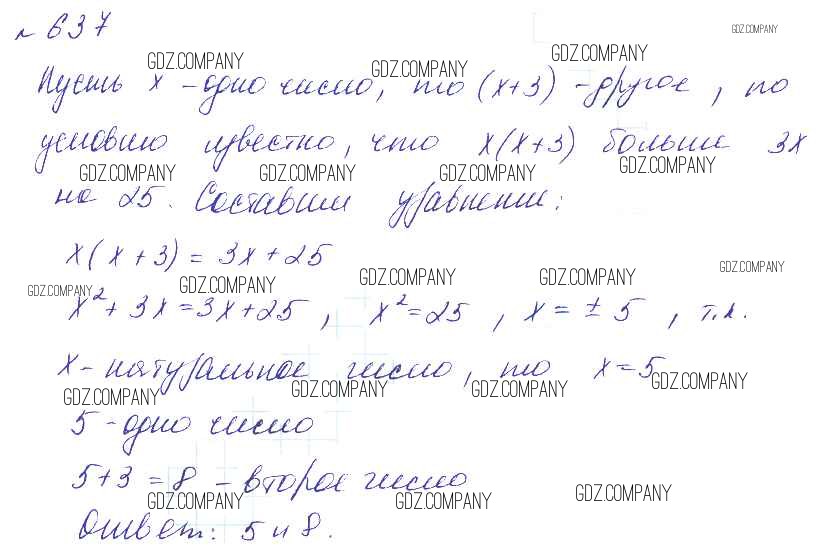 № 637
GDZ.COMPANY
GDZ.COMPANY GDZ.COMPANY GDZ.COMPANY
Пусть x - одно число, то (x+3) - другое, по
условию известно, что x(x+3) больше 3x
GDZ.COMPANY GDZ.COMPANY GDZ.COMPANY GDZ.COMPANY
на 25. Составим уравнение:
x(x+3) = 3x+25
GDZ.COMPANY GDZ.COMPANY GDZ.COMPANY GDZ.COMPANY GDZ.COMPANY
x²+3x=3x+25, x²=25, x=±5, т.к.
x - натуральное число, то x=5
GDZ.COMPANY GDZ.COMPANY GDZ.COMPANY GDZ.COMPANY
5 - одно число
5+3=8 - второе число
GDZ.COMPANY GDZ.COMPANY GDZ.COMPANY
Ответ: 5 и 8.